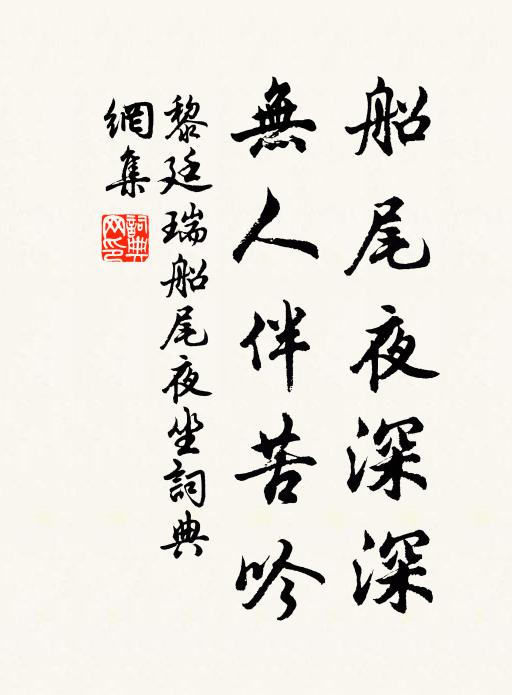 船尾夜深深
無人伴苦吟
黎廷瑞船尾夜坐詞典
網集
詞典
网印